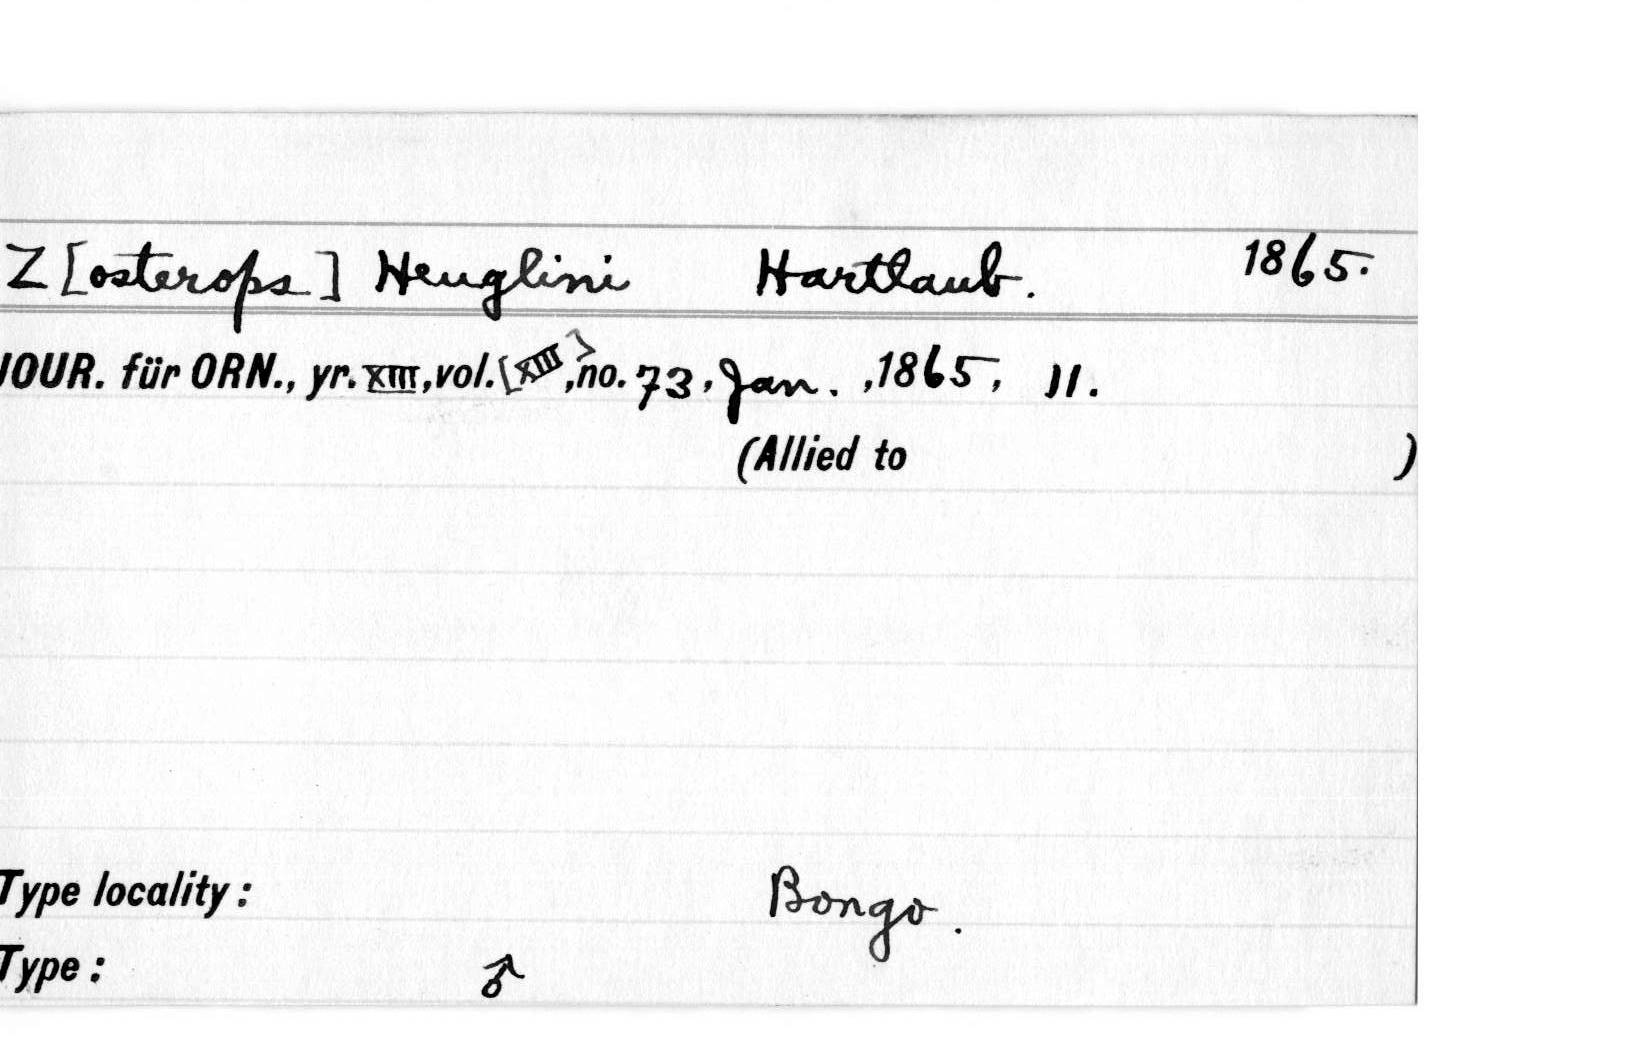 Z[osterops] Heuglini Hartlaub. 1865.
JOUR. für ORN., yr. XIII, vol. [XIII], no. 73, Jan. , 1865, 11.
(Allied to )
Type locality: Bongo.
Type: ♂